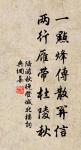 一點烽傳散關信
兩行雁帶杜陵秋
陸游秋晚登城北